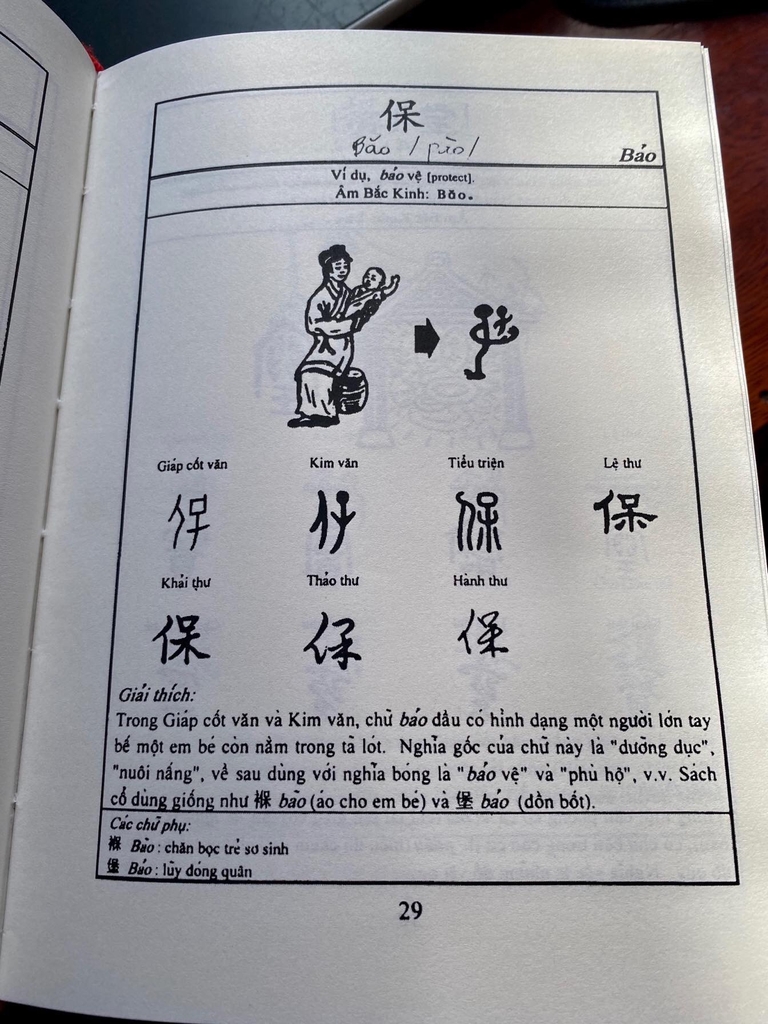 保
Bǎo /pǎo/
Bảo
Ví dụ, bảo vệ [protect].
Âm Bắc Kinh: Bǎo.
Giáp cốt văn Kim văn Tiểu triện Lệ thư
保 保 保 保
Khải thư Thảo thư Hành thư
保 保 保
Giải thích:
Trong Giáp cốt văn và Kim văn, chữ bảo đầu có hình dạng một người lớn tay
bế một em bé còn nằm trong tã lót. Nghĩa gốc của chữ này là "dưỡng dục",
"nuôi nấng", về sau dùng với nghĩa bóng là "bảo vệ" và "phù hộ", v.v. Sách
cổ dùng giống như 褓 bão (áo cho em bé) và 堡 bảo (đồn bốt).
Các chữ phụ:
褓 Bão : chăn bọc trẻ sơ sinh
堡 Bảo : lũy đóng quân
29